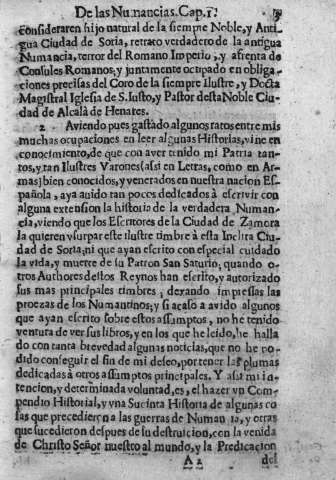 De las Numancias. Cap. 1.
consideraren hijo natural de la siempre Noble, y Anti-
gua Ciudad de Soria, retrato verdadero de la antigua
Numancia, terror del Romano Imperio, y afrenta de
Consules Romanos; y juntamente ocupado en obliga-
ciones precisas del Coro de la siempre Ilustre, y Docta
Magistral Iglesia de S. Iusto, y Pastor desta Noble Ciu-
dad de Alcalà de Henares.
2. Aviendo pues gastado algunos ratos entre mis
muchas ocupaciones en leer algunas Historias, vine en
conocimiento, de que con aver tenido mi Patria tan-
tos, y tan Ilustres Varones (assi en Letras, como en Ar-
mas) bien conocidos, y venerados en nuestra nacion Es-
pañola, aya avido tan pocos dedicados à escrivir con
alguna extension la historia de la verdadera Numan-
cia, viendo que los Escritores de la Ciudad de Zamora
la quieren vsurpar este ilustre timbre à esta Inclita Ciu-
dad de Soria; ni que ayan escrito con especial cuidado
la vida, y muerte de su Patron San Saturio, quando o-
tros Authores destos Reynos han escrito, y autorizado
sus mas principales timbres, dexando impressas las
proezas de los Numantinos; y si acaso a avido algunos
que ayan escrito sobre estos assumptos, no he tenido
ventura de ver sus libros, y en los que he leido, he halla
do con tanta brevedad algunas noticias, que no he po-
dido conseguir el fin de mi deseo, por tener las plumas
dedicadas à otros assumptos principales. Y assi mi in-
tencion, y determinada voluntad, es, el hazer vn Com-
pendio Historial, y vna Sucinta Historia de algunas co
sas que precedieron a las guerras de Numancia, y otras
que sucedieron despues de su destruicion, con la venida
de Christo Señor nuestro al mundo, y la Predicacion
A 2 del